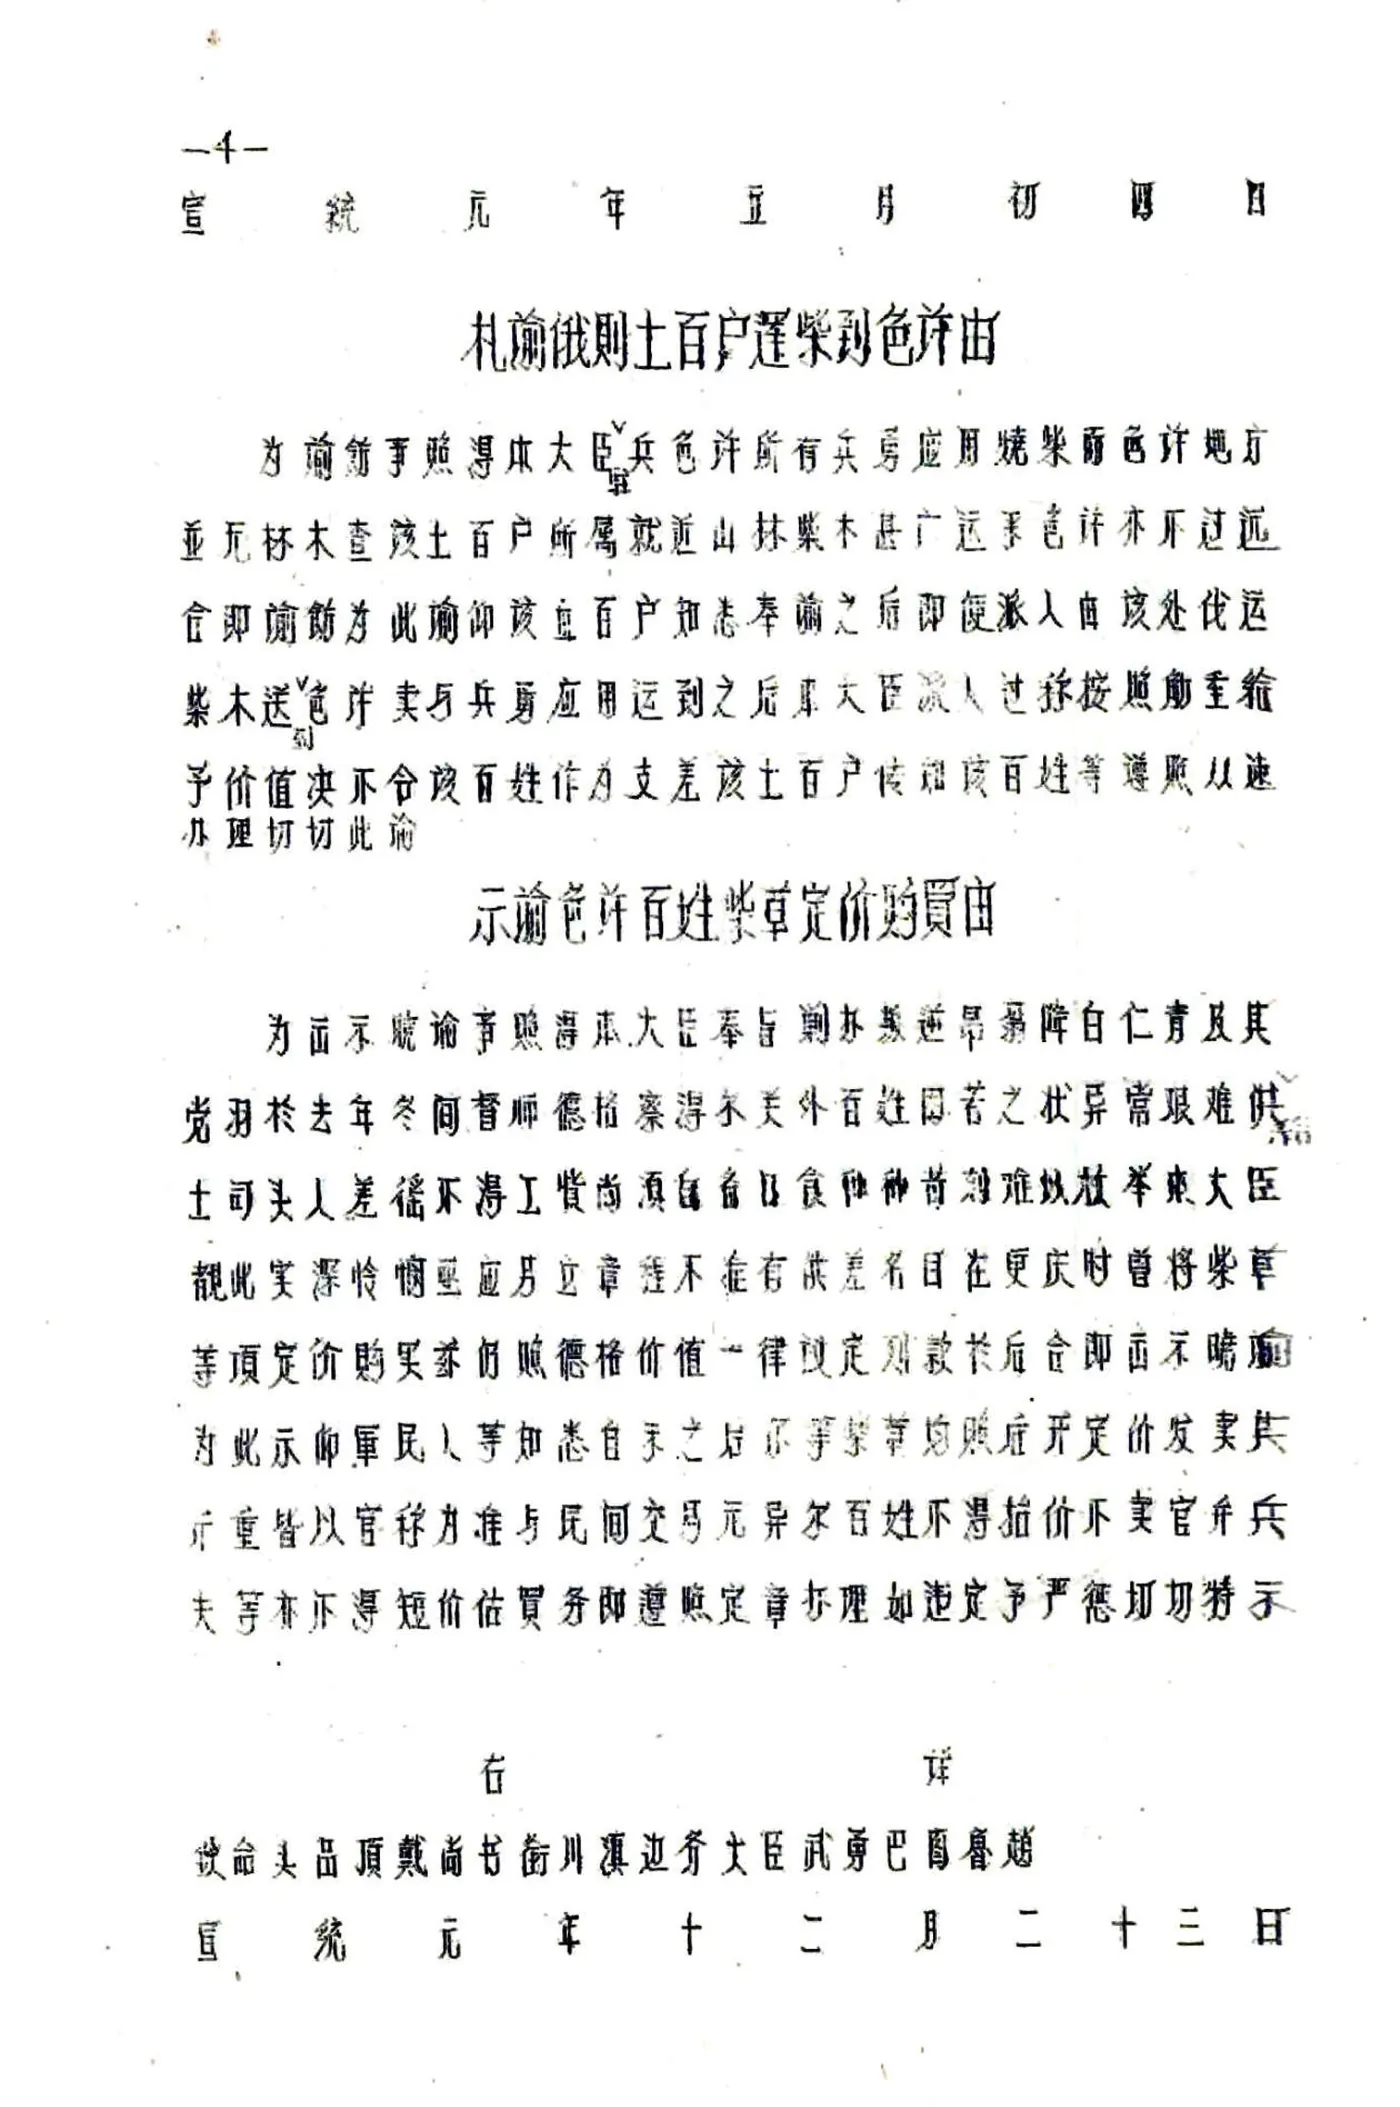 —4—
宣統元年五月初四日
札諭俄則土百户運柴到色许由
为諭飭事照得本大臣驻兵色许所有兵勇应用燒柴而色许地方
並无林木查该土百户所属就近山林柴木甚广运至色许亦不过远
合即諭飭为此諭仰该土百户知悉奉諭之后即便派人由该处伐运
柴木送到色许卖与兵勇应用运到之后本大臣派人过称按照觔重给
予价值决不令该百姓作为支差该土百户传知该百姓等遵照从速
办理切切此谕
示諭色许百姓柴草定价购買由
为出示晓谕事照得本大臣奉旨剿办叛逆昂翁降白仁青及其
党羽於去年冬间督师德格察得尔关外百姓困苦之状异常艰难供
土司头人差徭不得工资尚須自备口食种种苛刻难以枚举本大臣
覩此实深怜憫亟应另立章程不准有供差名目在更庆时曾将柴草
等項定价购买茲仍照德格价值一律议定列款於后合即出示曉諭
为此示仰軍民人等知悉自示之后尔等柴草均照后开定价发卖其
斤重皆以官称为准与民间交易无异尔百姓不得抬价不卖官弁兵
夫等亦不得短价估買务即遵照定章办理如违定予严惩切切特示
右详
钦命头品頂戴尚书衔川滇边务大臣武勇巴图鲁趙
宣統元年十二月二十三日